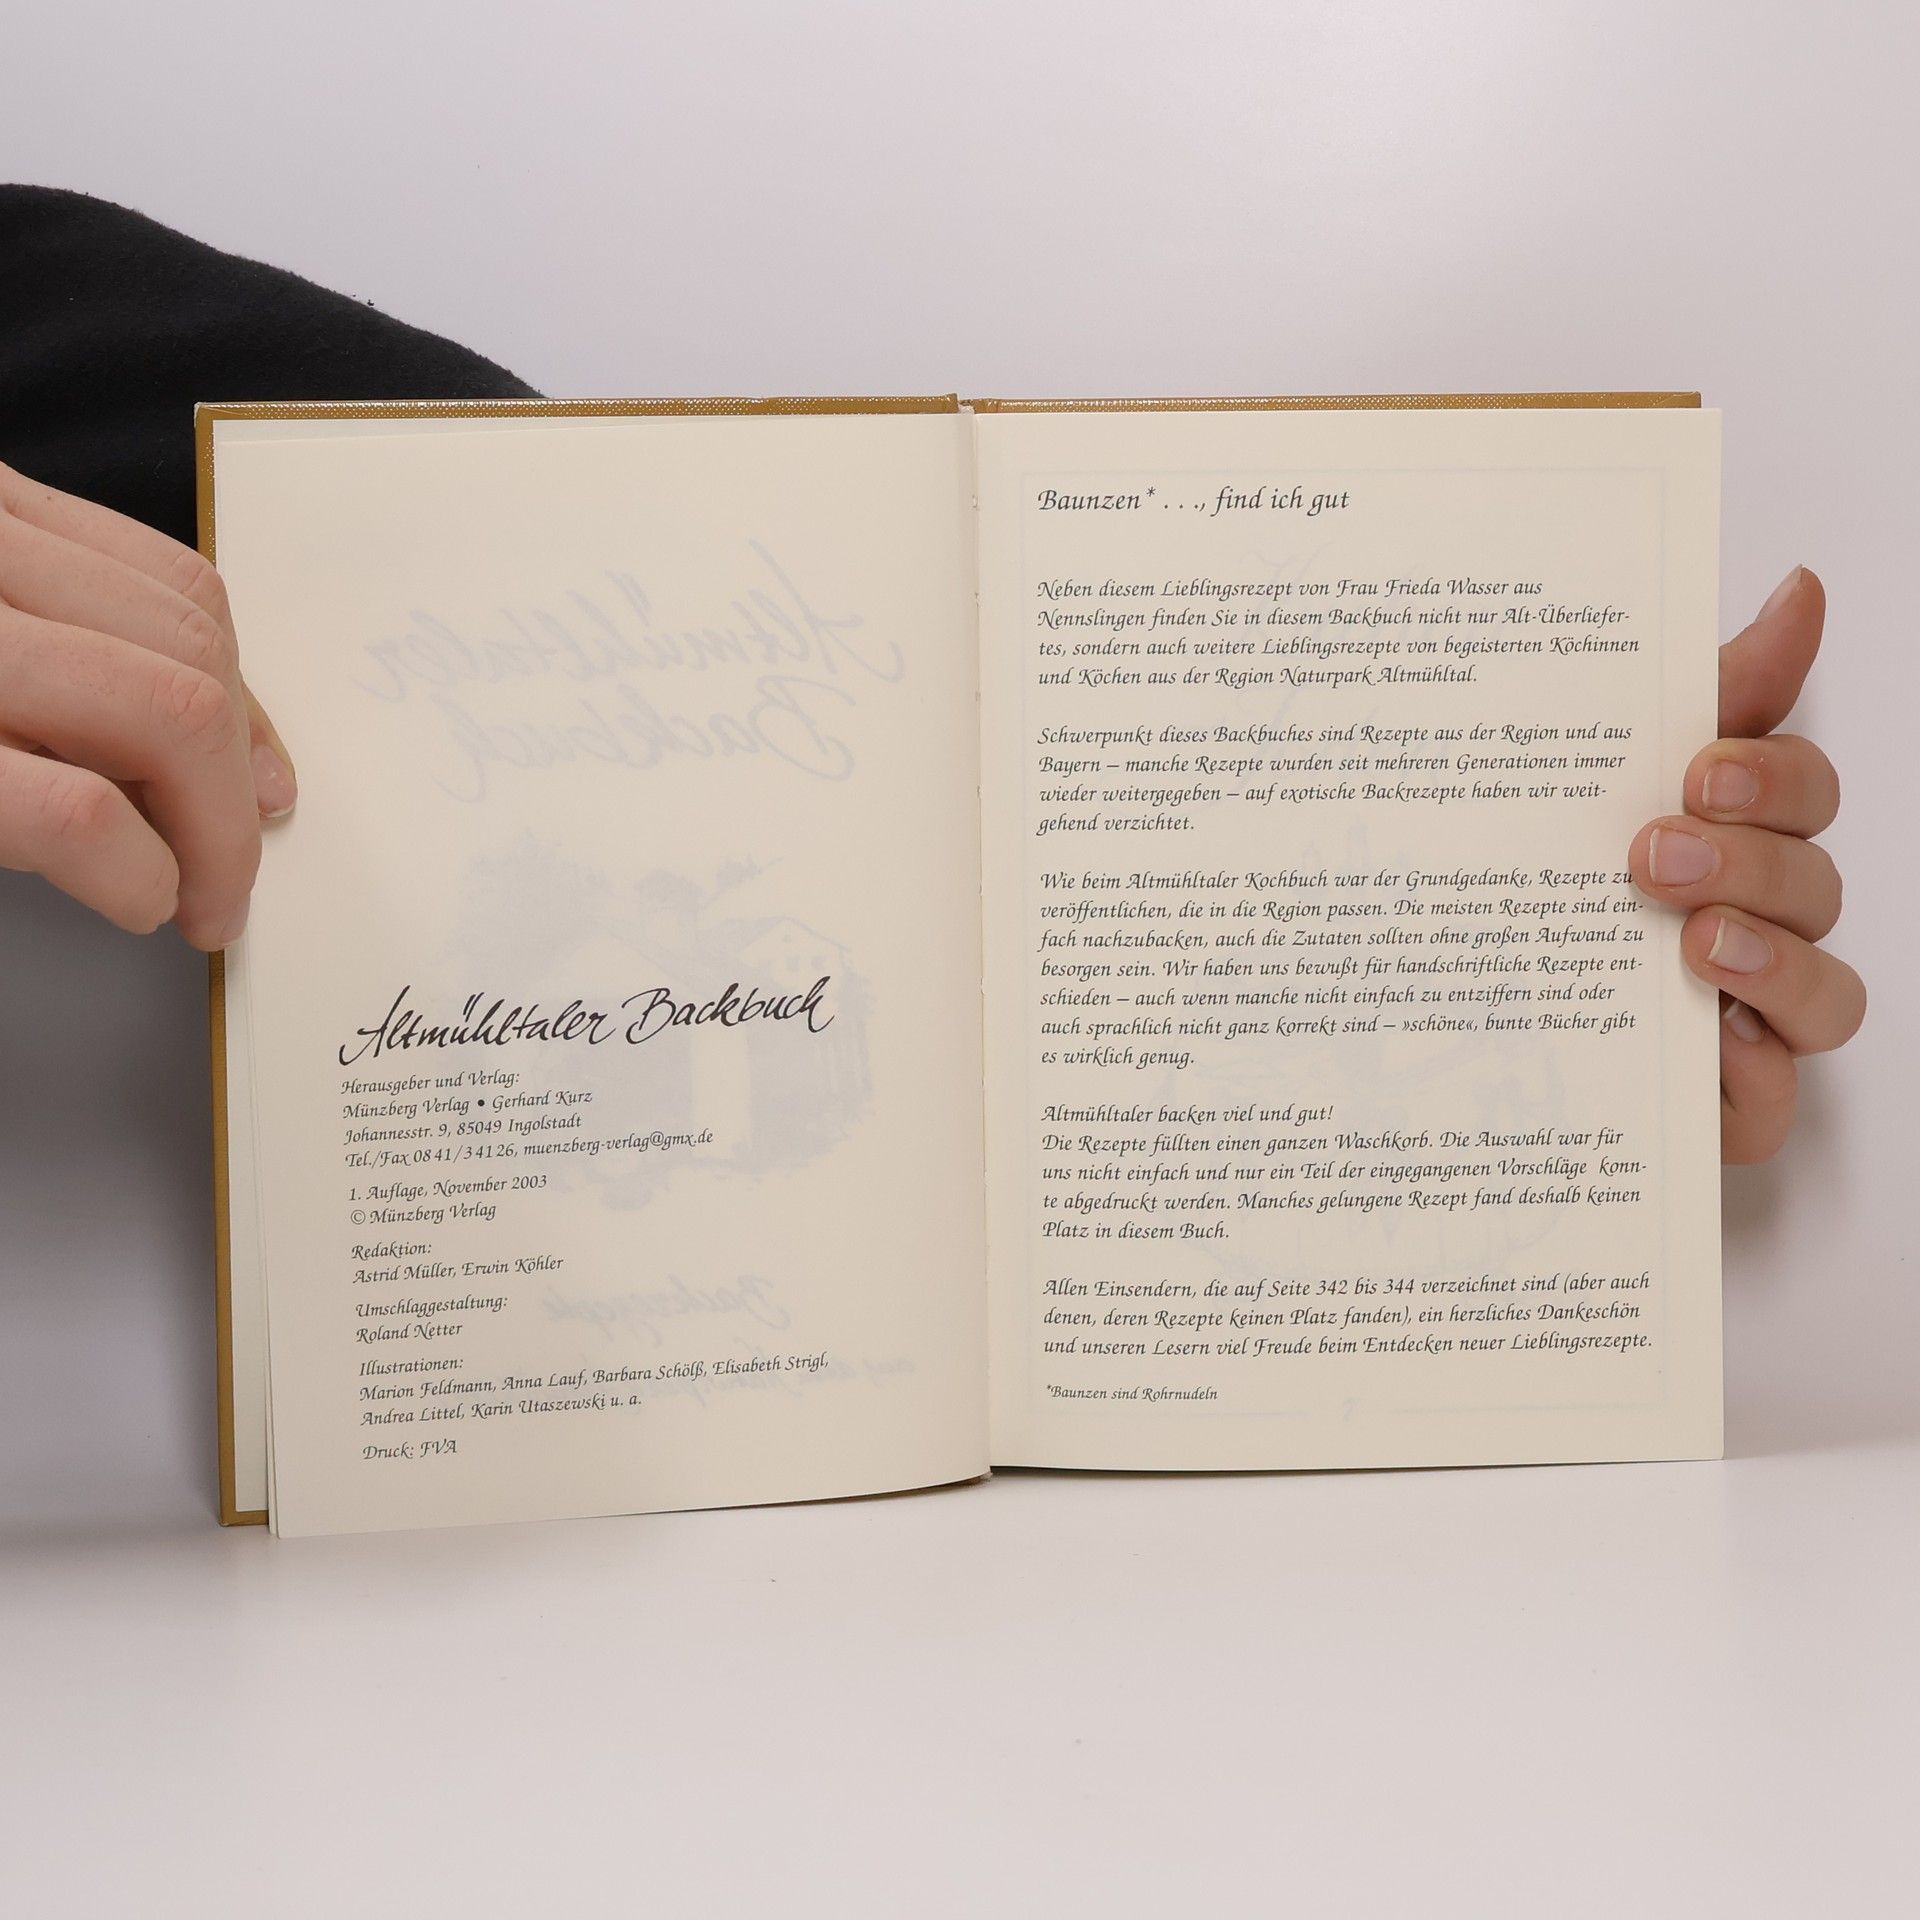 Altmühltaler Backbuch
Herausgeber und Verlag:
Münzberg Verlag • Gerhard Kurz
Johannesstr. 9, 85049 Ingolstadt
Tel./Fax 08 41 / 3 41 26, muenzberg-verlag@gmx.de
1. Auflage, November 2003
© Münzberg Verlag
Redaktion:
Astrid Müller, Erwin Köhler
Umschlaggestaltung:
Roland Netter
Illustrationen:
Marion Feldmann, Anna Lauf, Barbara Schölß, Elisabeth Strigl,
Andrea Littel, Karin Utaszewski u. a.
Druck: FVA
Baunzen* . . ., find ich gut
Neben diesem Lieblingsrezept von Frau Frieda Wasser aus
Nennslingen finden Sie in diesem Backbuch nicht nur Alt-Überliefer-
tes, sondern auch weitere Lieblingsrezepte von begeisterten Köchinnen
und Köchen aus der Region Naturpark Altmühltal.
Schwerpunkt dieses Backbuches sind Rezepte aus der Region und aus
Bayern – manche Rezepte wurden seit mehreren Generationen immer
wieder weitergegeben – auf exotische Backrezepte haben wir weit-
gehend verzichtet.
Wie beim Altmühltaler Kochbuch war der Grundgedanke, Rezepte zu
veröffentlichen, die in die Region passen. Die meisten Rezepte sind ein-
fach nachzubacken, auch die Zutaten sollten ohne großen Aufwand zu
besorgen sein. Wir haben uns bewußt für handschriftliche Rezepte ent-
schieden – auch wenn manche nicht einfach zu entziffern sind oder
auch sprachlich nicht ganz korrekt sind – »schöne«, bunte Bücher gibt
es wirklich genug.
Altmühltaler backen viel und gut!
Die Rezepte füllten einen ganzen Waschkorb. Die Auswahl war für
uns nicht einfach und nur ein Teil der eingegangenen Vorschläge konn-
te abgedruckt werden. Manches gelungene Rezept fand deshalb keinen
Platz in diesem Buch.
Allen Einsendern, die auf Seite 342 bis 344 verzeichnet sind (aber auch
denen, deren Rezepte keinen Platz fanden), ein herzliches Dankeschön
und unseren Lesern viel Freude beim Entdecken neuer Lieblingsrezepte.
*Baunzen sind Rohrnudeln